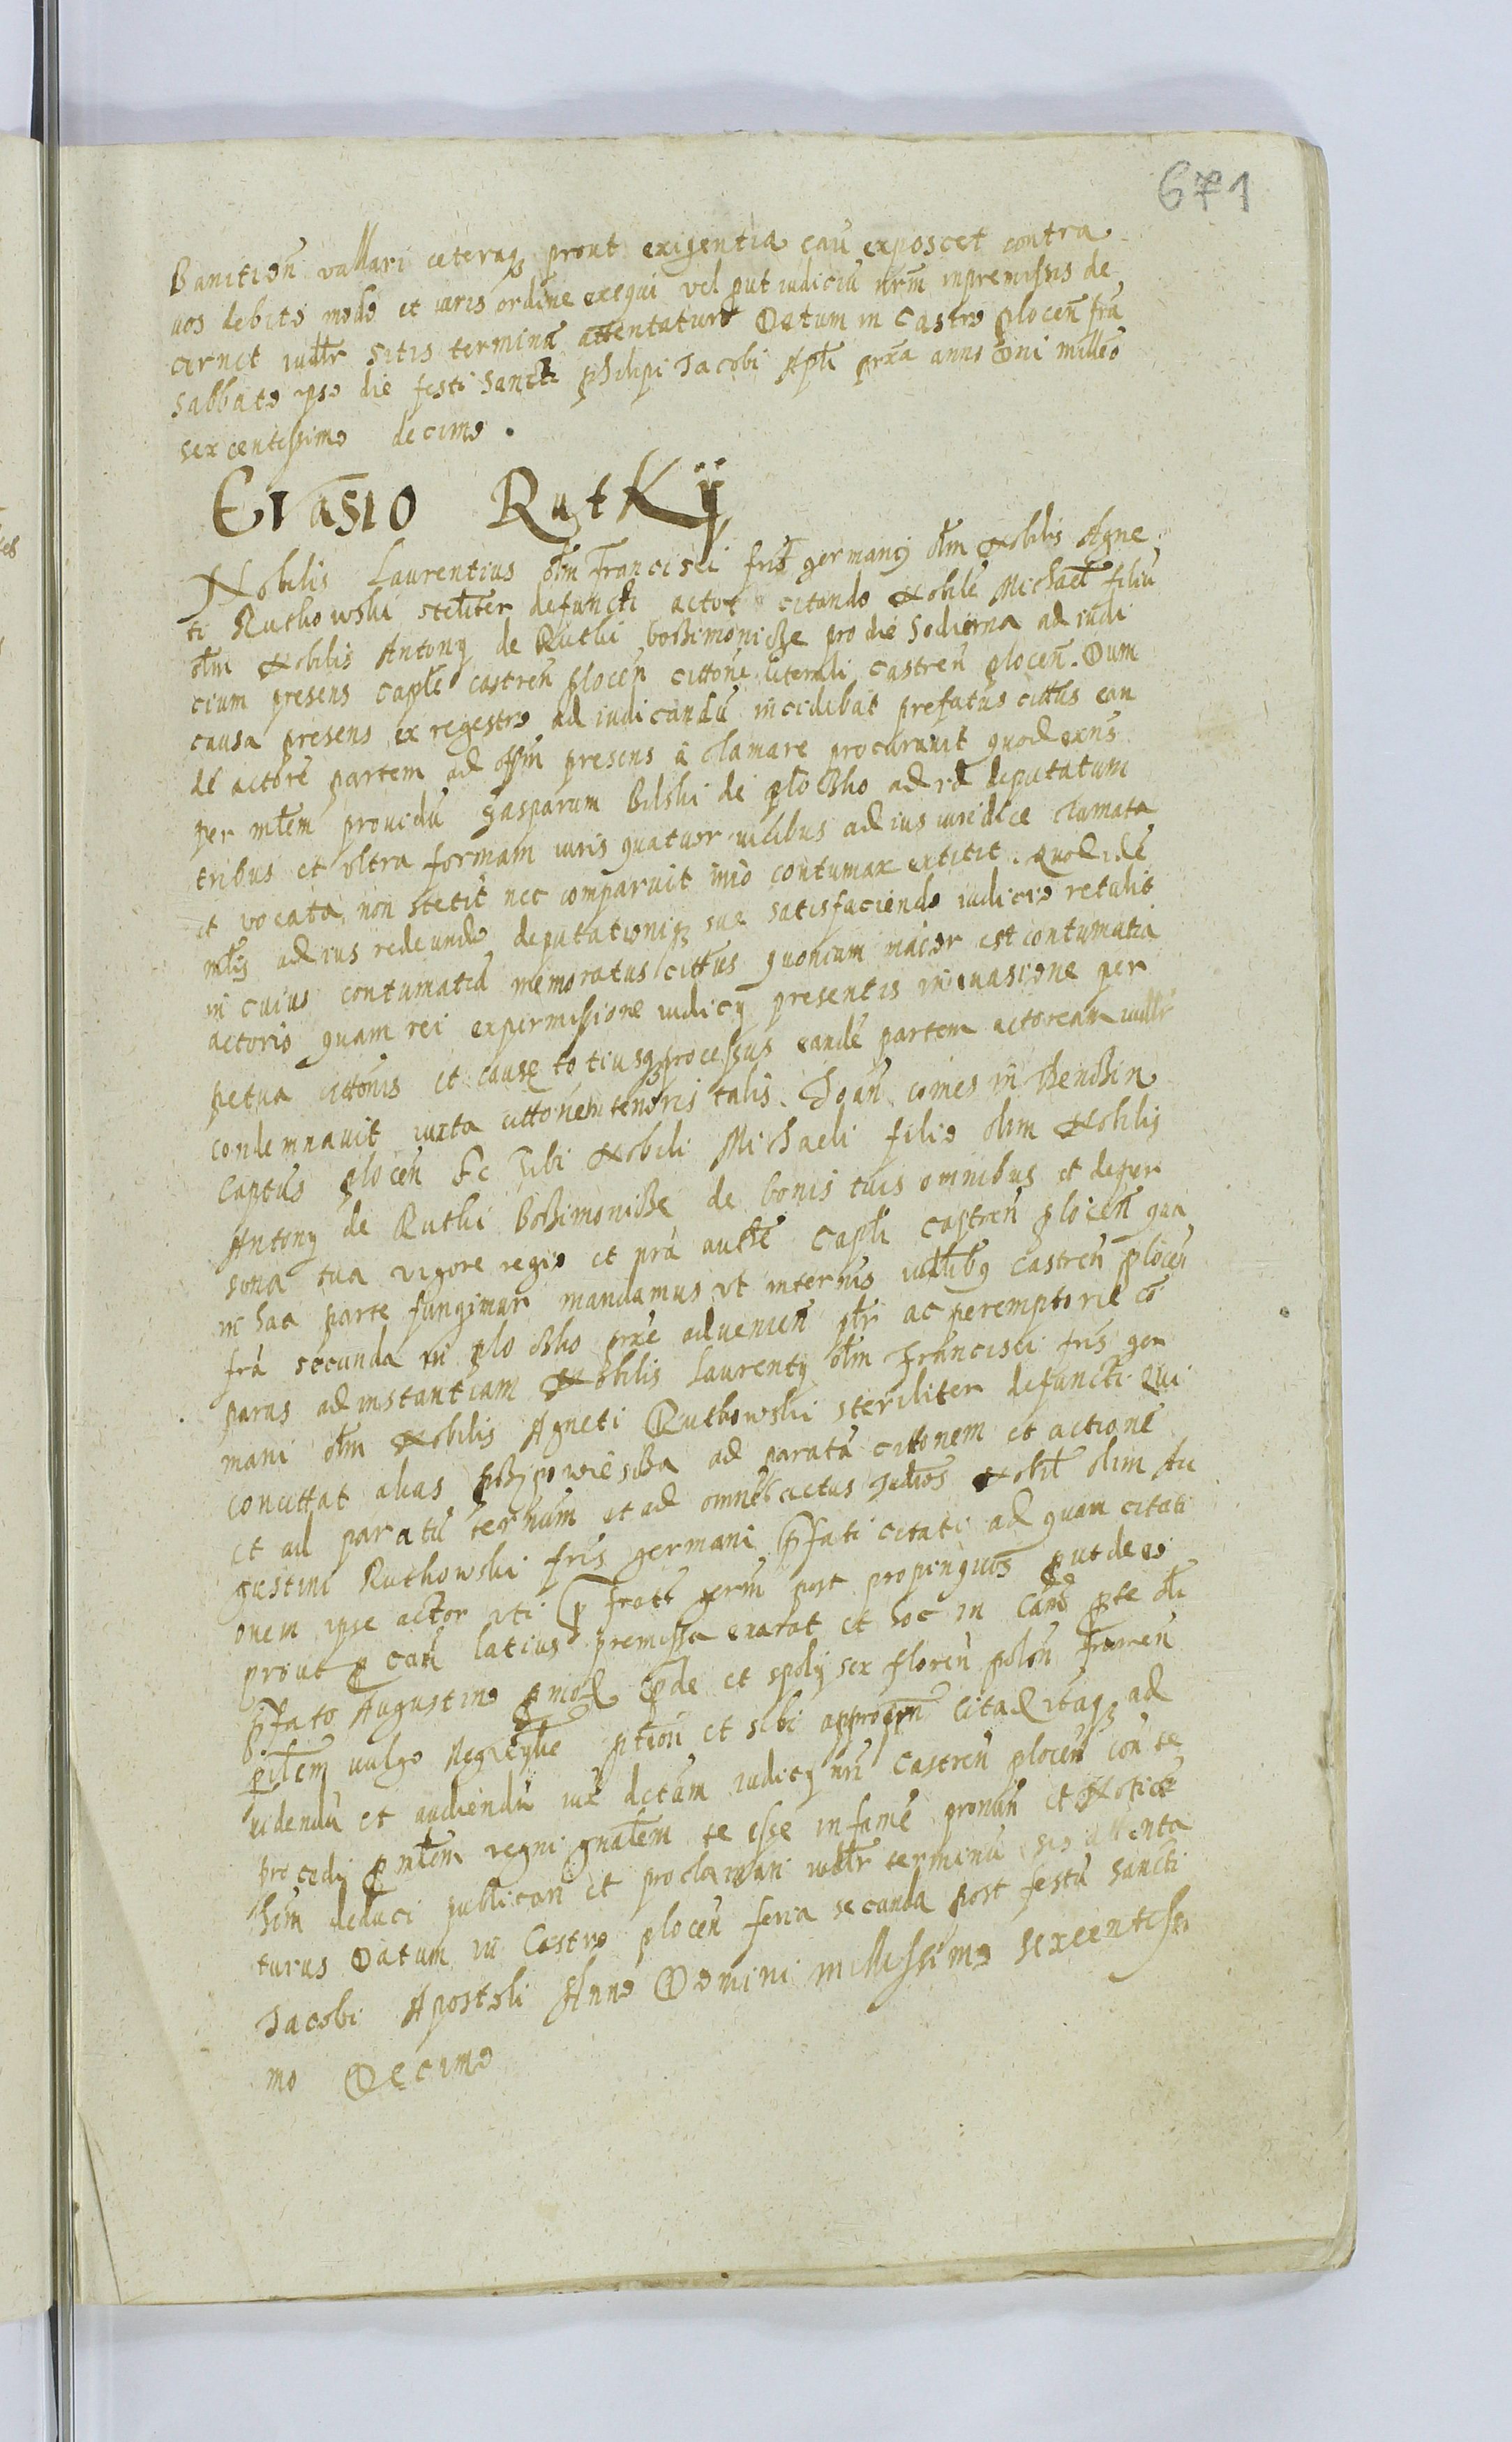 671
Banition vallari ceteraq3 prout exigentia cau exposcet contra
vos debito modo et iuris ordine exequi vel put iudiciu nrm inpremissis de
cernet iudlr sitis terminu attentatur Datum in Castro plocen fra
Sabbato ipso die festi Sancti philipi Jacobi Apli prxa anno Dni milleo
sexcentissimo decimo .
Euasio Rutkÿ
Nobilis Laurentius olm Francisci fris germanÿ olm Nobilis Agne
ti Ruthowski steliter defuncti actor citando Nobile Michael filiu
olm Nobilis Antonÿ de Ruthi pro die hodierna ad iudi
cium presens caple castren plocen cittone literali castren plocen. Dum
causa presens ex regestro ad iudicandu incidebat prefatus cittus ean
de actore partem ad offm presens a clamare procurauit quod
per mlem prouidu Gasparum Bilski de plo ad id deputatum
tribus et vltra formam iuris quatuor vicibus ad ius iuridice clamata
et vocata non stetit nec comparuit imo contumax extitit. Quod ide
mlis ad ius redeundo deputationiq3 sue satisfaciendo iudicio retulit
in cuius contumatia memoratus cittus quonium maior est contumatia
actoris quam rei expermissione iudicÿ presentis in euasione per
petua cittonis et cause totiusq3 processus eande partem actoream iudlr
condemnauit iuxta cittonem tenoris talis. Joan comes in Thenchin
Captus plocen Ec tibi Nobili Michaeli filio olim Nobilis
Antonÿ de Ruthi de bonis tuis omnibus et deper
sona tua vigore regio et pra authe Capli castren plocen qua
in hac parte fungimur mandamus vt internis iudlibq castren plocen
fra secunda in plo prxe aduenien plr ac peremptorie co
paras ad instantiam Nobilis Laurentÿ olm Francisci fris ger
mani olm Nobilis Agneti Ruthowski steriliter defuncti Qui
concittat alias ad parata cittonem et actione
et ad paratu ternum et ad omnes actus Judios Nobil olim Au
gustini Ruthowski fris germani pfati citati ad quam citati
onem ipse actor vti p fratr germ post propinquos put de eo
prout p eam latius premissa exatat et hoc in eam pte
pfato Augustino et spolÿ sex floren polon
vulgo ption et sibi Citad itaq3 ad
videndu et audiendu iux dctam iudicÿ nri castren plocen con te
procedi p mlem regni gnalem te esse infame pronun et
deduci publicari et proclamari iudlr terminu sis attenta
turus Datum in Castro plocen feria secunda post festu Sancti
Jacobi Apostoli Anno Domini millissimo sexcentissi
mo Decimo